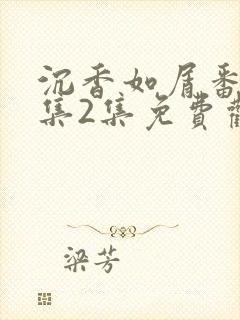 沉香如屑番
集2集免費觀
梁芳